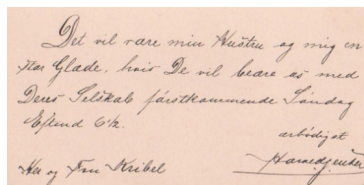 Det vil være min Hustru og mig en
stor Glæde, hvis De vil beære os med
Deres Selskab førstkommende Søndag
Eftmd 6½.
ærbødigst
Hr og Fru Kribel